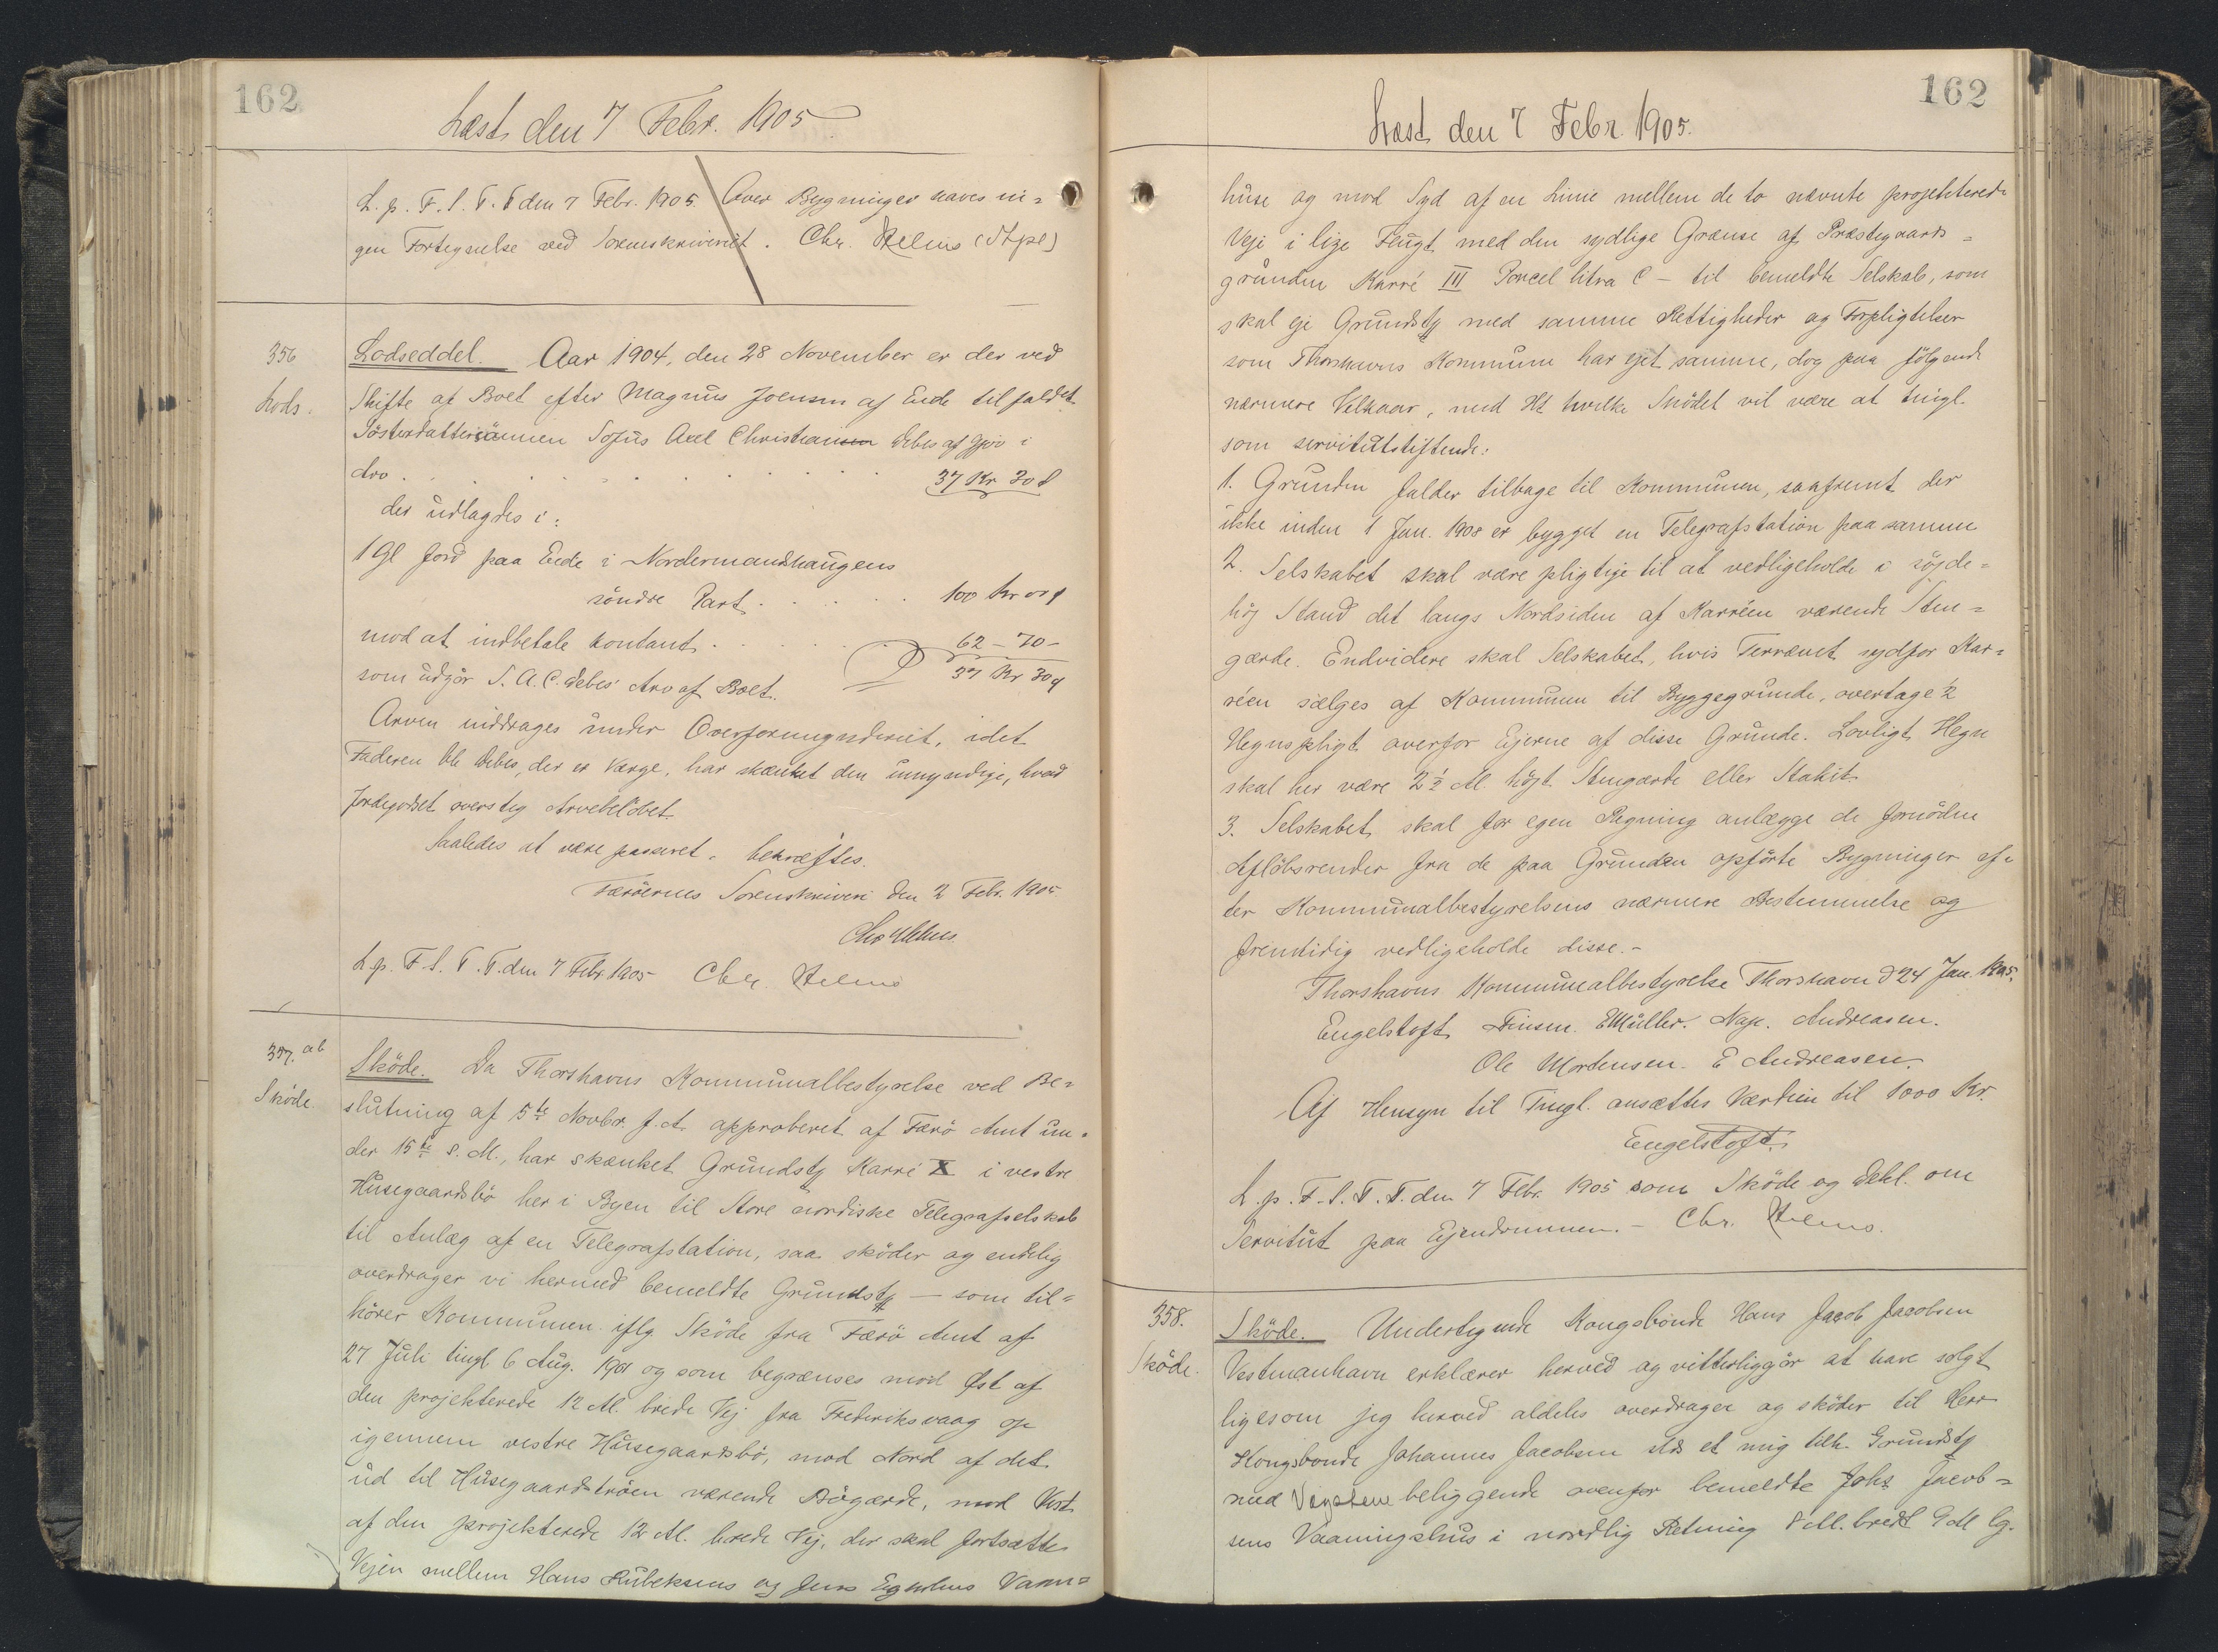 162
Læst den 7 Febr. 1905
L. p. F. S. T. T den 7 Febr. 1905. Over Bygninger haves in=
gen Fortegnelse ved Sorenskriveriet. Chr. Helms (Stpl)
356
Lods.
Lodseddel. Aar 1904, den 28 November er der ved
Skifte af Boet efter Magnus Joensen af Eide tilfaldet
Søsterdattersønnen Sofus Axel Christiansen Debes af Gjov i
Arv . . . . . . . . . . 37 Kr 30 Ø
der udlagdes i:
1 Gl Jord paa Eide i Nordermandshaugens
söndre Part . . . . . . 100 Kr 00 Ø
mod at indbetale kontant . . . . . . 62 - 70 -
som udgör S. A. C. Debes' Arv af Boet. 37 Kr 30 Ø
Arven inddrages under Overformynderiet, idet
Faderen Ole Debes, der er Værge, har skænket den umyndige, hvad
Jordegodset oversteg Arvebelöbet.
Saaledes at være passeret, bekræftes.
Færöernes Sorenskriveri den 2 Febr. 1905.
Chr Helms
L. p. F. S. T. T. den 7 Febr 1905 Chr. Helms
357. ab
Sköde.
Sköde. Da Thorshavns Kommunalbestyrelse ved Be=
slutning af 5te Novbr. f. A. approberet af Færö Amt un=
der 15de s. M., har skænket Grundsty Karré X i vestre
Husegaardsbö her i Byen til Store nordiske Telegrafselskab
til Anlæg af en Telegrafstation, saa sköder og endelig
overdrager vi hermed bemeldte Grundsty — som til=
hörer Kommunen iflg Sköde fra Færö Amt af
27 Juli tingl 6 Aug. 1901 og som begrænses mod Øst af
den projekterede 12 Al. brede Vej fra Frederiksvaag op
igennem vestre Husegaardsbö, mod Nord af det
ud til Husegaardströen værende Bögærde, mod Vest
af den projekterede 12 Al. brede Vej, der skal fortsætte
Vejen mellem Hans Lützens og Jens Egholms Vaan=
162
Læst den 7 Febr 1905.
huse og mod Syd af en Linie mellem de to nævnte projekterede
Veje i lige Flugt med den sydlige Grænse af Præstegaards=
grunden Karré III Parcel litra C — til bemeldte Selskab, som
skal eje Grundsty med samme Rettigheder og Forpligtelser
som Thorshavns Kommune har ejet samme, dog paa fölgende
nærmere Vilkaar, med Ht hvilke Sködet vil være at tingl.
som servitutstiftende:
1. Grunden falder tilbage til Kommunen, saafremt der
ikke inden 1 Jan. 1908 er bygget en Telegrafstation paa samme
2. Selskabet skal være pligtige til at vedligeholde i
höj Stand det langs Nordsiden af Karréen værende Sten=
gærde. Endvidere skal Selskabet, hvis Terrænet sydfor Kar=
réen sælges af Kommunen til Byggegrunde, overtage ½
Hegnspligt overfor Ejerne af disse Grunde. Lovligt Hegn
skal her være 2½ Al. höjt Stengærde eller Stakit
3. Selskabet skal for egen Regning anlægge de fornödne
Aflöbsrender fra de paa Grunden opförte Bygninger ef=
ter Kommunalbestyrelsens nærmere Bestemmelse og
fremtidig vedligeholde disse.—
Thorshavns Kommunalbestyrelse Thorshavn d 24 Jan. 1905.
Engelstoft Finsen. E Müller. Nap. Andreasen.
Ole Mortensen. E Andreasen.
Af Hensyn til Tingl. ansættes Værdien til 1000 Kr.
Engelstoft.
L. p. F. S. T. T. den 7 Febr. 1905 som Sköde og Dekl. om
Servitut paa Ejendommen.— Chr. Helms.
358.
Sköde.
Sköde. Undertegnede Kongsbonde Hans Jacob Jacobsen
Vestmanhavn erklærer herved og vitterliggör at have solgt
ligesom jeg herved aldeles overdrager og sköder til Herr
Kongsbonde Johannes Jacobsen slds et mig tilh. Grundsty
beliggende ovenfor bemeldte Johs Jacob=
sens Vaaningshus i nordlig Retning 8 Al. bredt 9 Al lg.